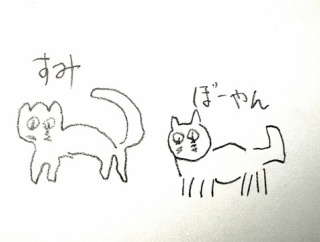 すみ
ぼーやん